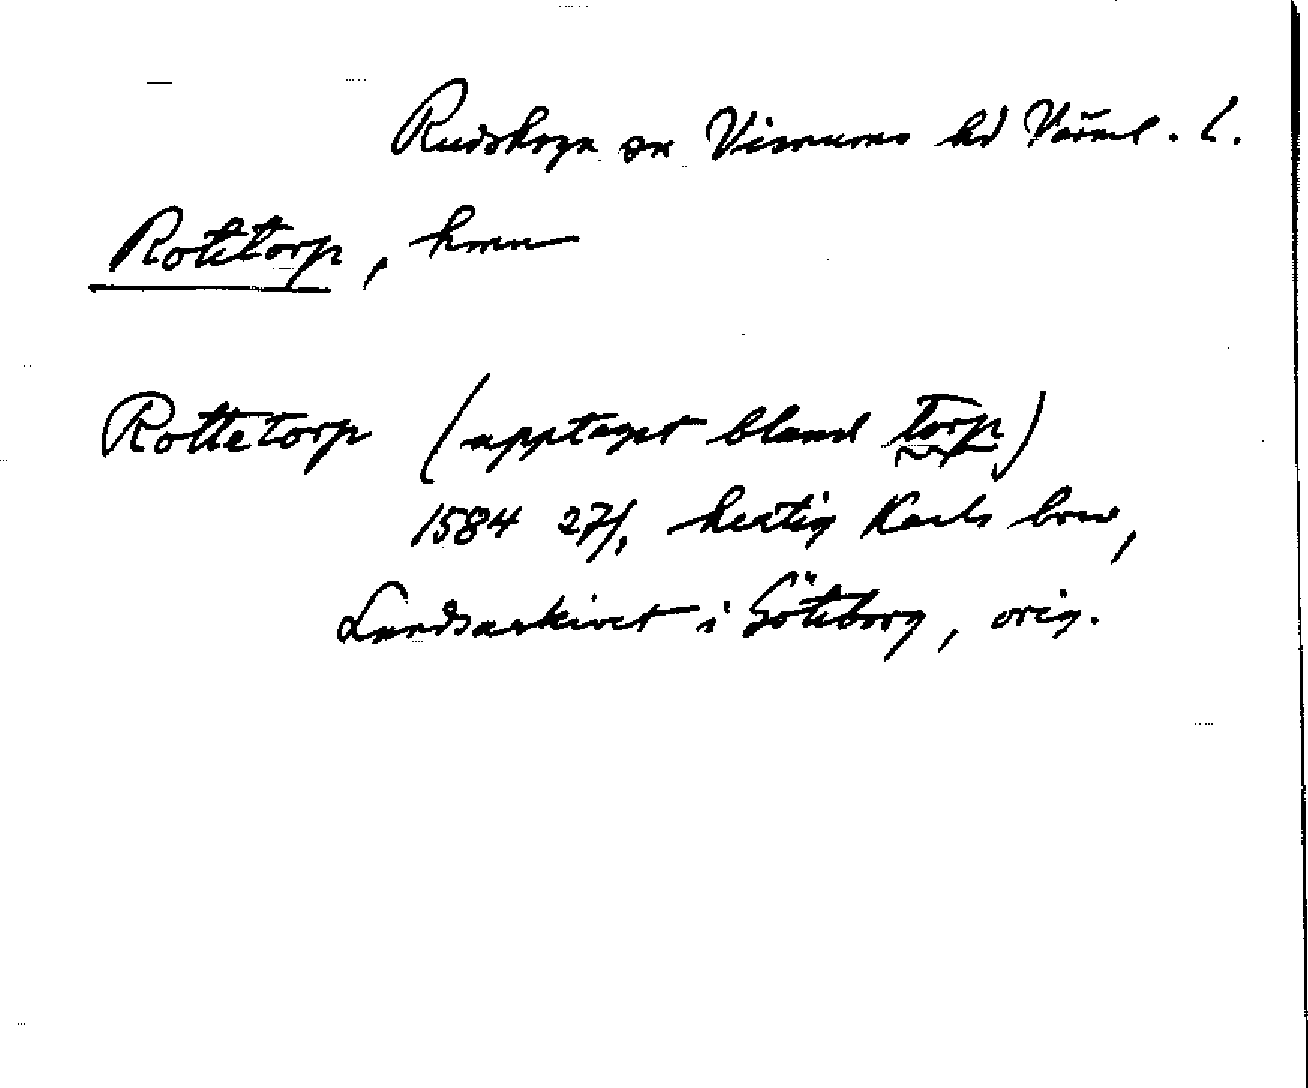 Rudskoga sn Visnums hd Värml. l.
Rotetorp, hmn
Rottetorp (upptaget bland torp)
1584 27/1 hertig Karls brev,
Landsarkivet i Göteborg, orig.